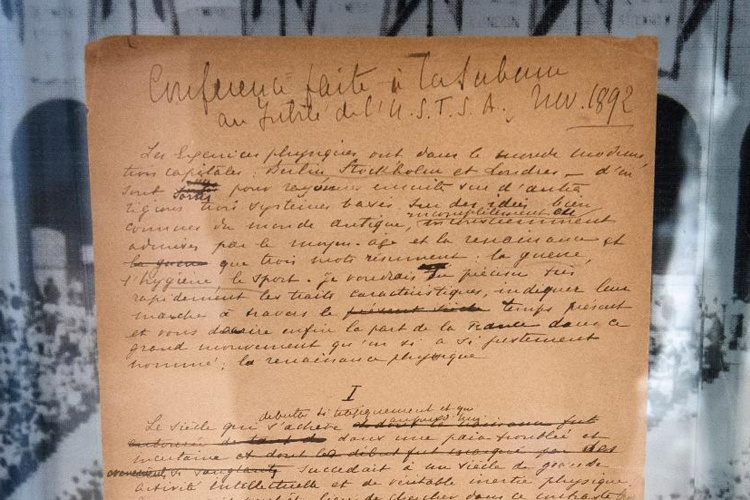 LONDON
Conférence faite à la Sorbonne
au Jubilé de l'U.S.T.S.A., Nov. 1892
Les Exercices physiques ont dans le monde moderne,
trois capitales : Berlin, Stockholm et Londres — d'où
sont sortis pour rayonner ensuite sur d'autres
régions trois systèmes basés sur des idées bien
connues du monde antique, incomplètement et
inconsciemment
admises par le moyen-age et la renaissance et
la guerre que trois mots résument : la guerre,
l'hygiène, le sport. Je voudrais en préciser très
rapidement les traits caractéristiques, indiquer leur
marche à travers le présent siècle temps présent
et vous dire enfin la part de la France dans ce
grand mouvement qu'on a si justement
nommé ; la renaissance physique
I
débuta si tragiquement et qui
Le siècle qui s'achève
dans une paix troublée et
incertaine et dont le début fut marqué par des
si sanglants succédait à un siècle de grande
activité intellectuelle et de véritable inertie physique.